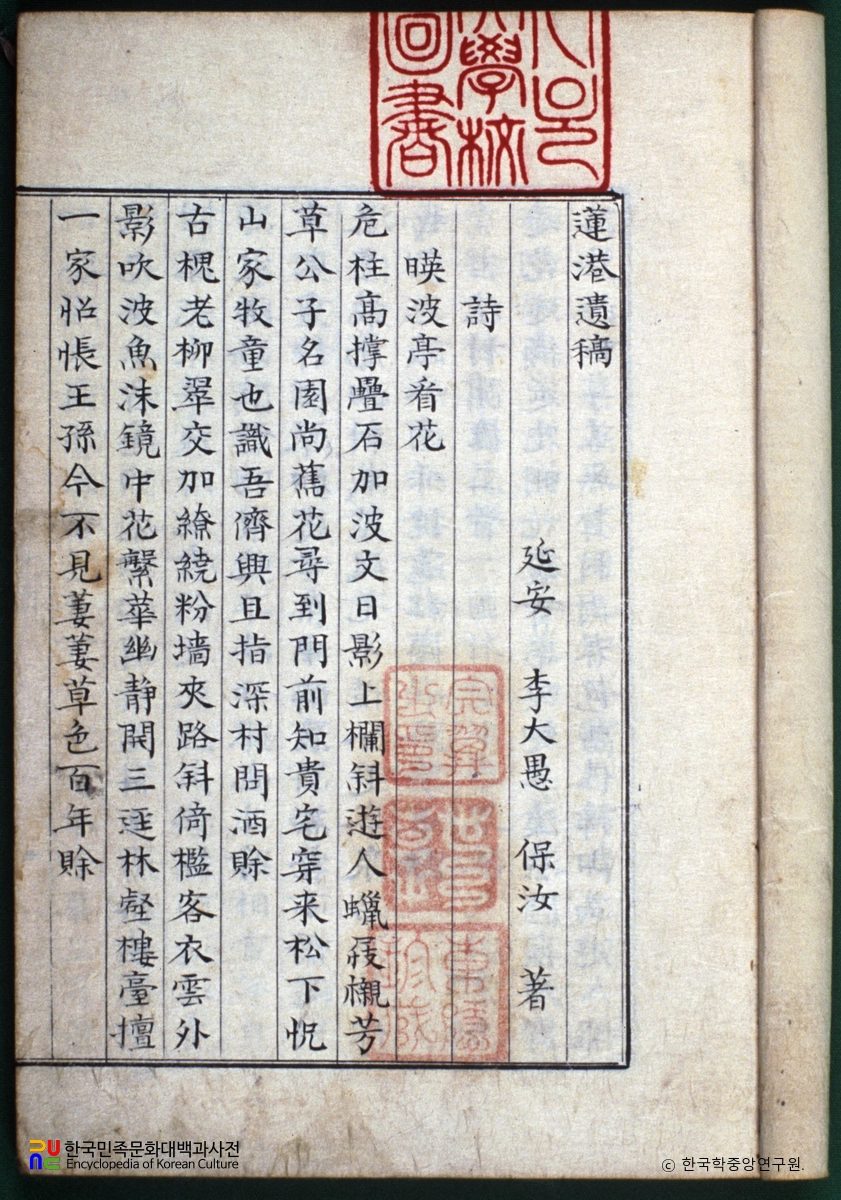 蓮港遺稿
延安 李大愚 保汝 著
詩
暎波亭看花
危柱髙撑疊石加波文日影上欄斜遊人蠟屐襯芳
草公子名園尚舊花尋到門前知貴宅穿来松下怳
山家牧童也識吾儕興且指深村問酒賖
古槐老柳翠交加繚繞粉墙夾路斜倚檻客衣雲外
影吹波魚沫鏡中花繁華幽静開三逕林壑樓臺擅
一家怊悵王孫今不見萋萋草色百年賖
學校
圖書
한국민족문화대백과사전
Encyclopedia of Korean Culture
© 한국학중앙연구원.